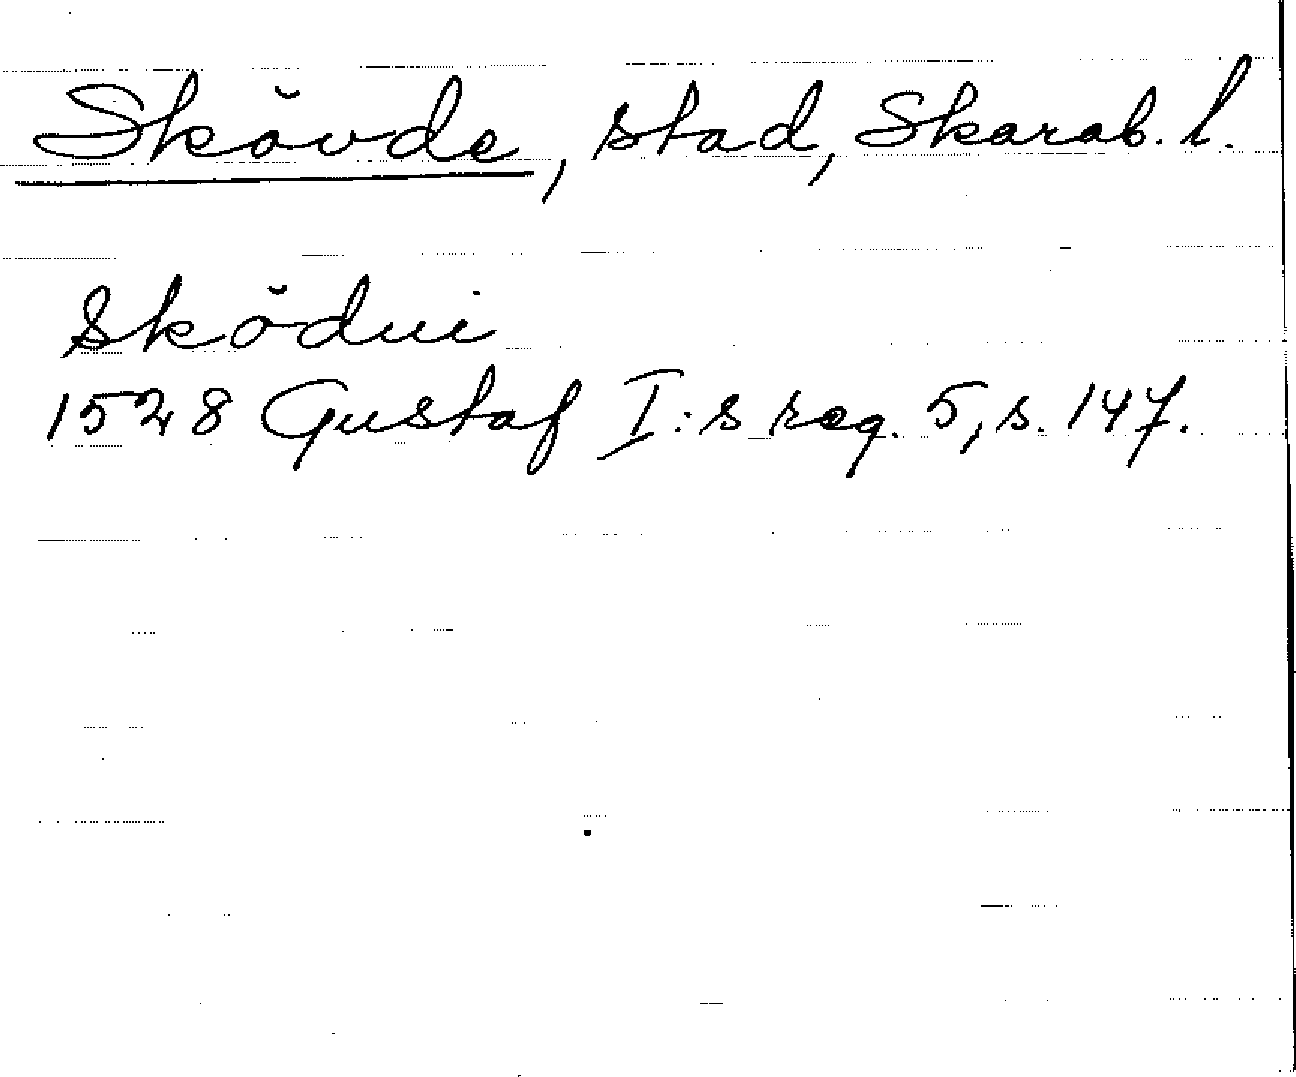 Skövde, stad, Skarab. l.
Sködui
1528 Gustaf I:s reg. 5, s. 147.